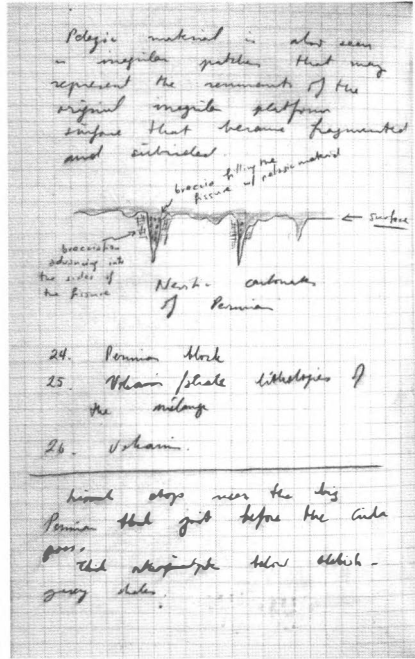 Pelagic material is also seen
in irregular patches that may
represent the remnants of the
original irregular platform
surface that became fragmented
and subsided.
breccia filling the
fissure w/ pelagic material
← surface
brecciation
advancing into
the sides of
the fissure
carbonates
of Permian
24. Permian block
25 Volcanic/shale lithologies of
the mélange
26. Volcanic
stops near the big
Permian just before the
pass.
below
grey shales.